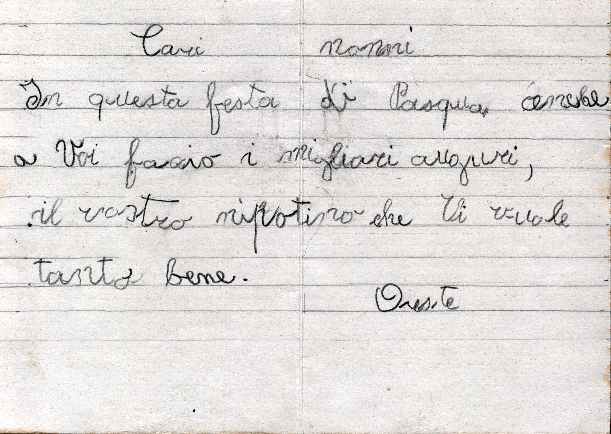 Cari nonni
In questa festa di Pasqua, anche
a Voi faccio i migliari auguri,
il vostro nipotino che Vi vuole
tanto bene.
Oreste